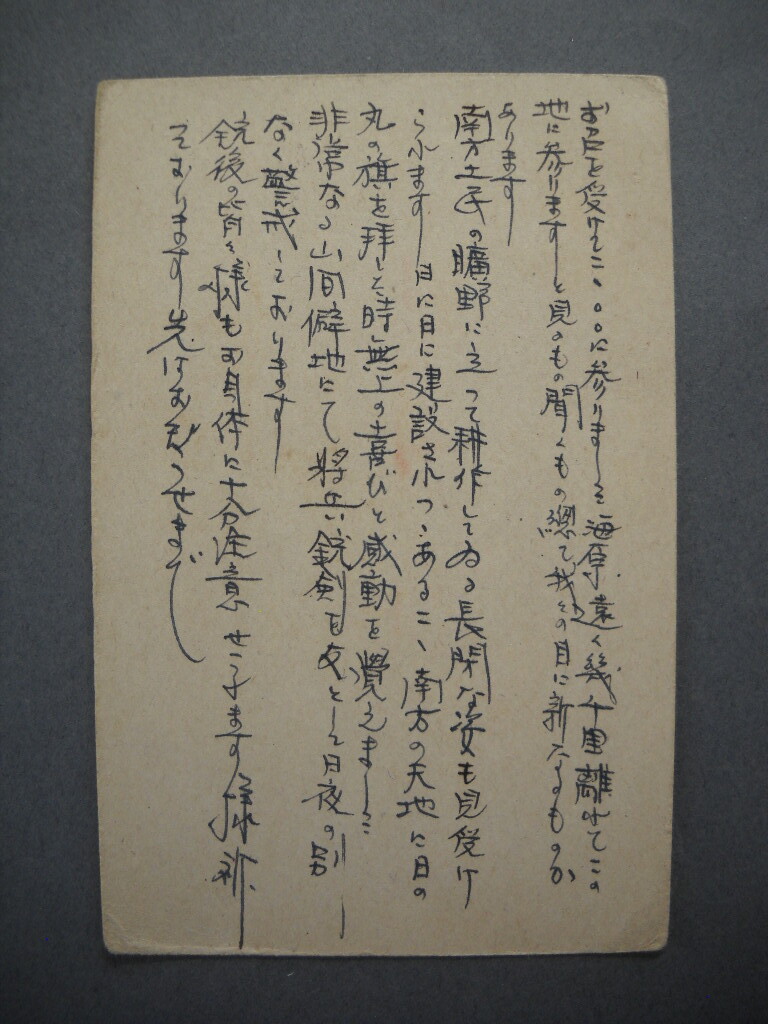 お召を受けてこゝ〇〇に参りました海原遠く幾千里離れてこの
地に参りますと見るもの聞くもの總て我々の目に新たなるものが
あります
南方土民の曠野に立って耕作してゐる長閑な姿も見受け
られます 日に日に建設されつゝあるこゝ南方の天地に日の
丸の旗を拝した時無上の喜びと感動を覺えました
非常なる山間僻地にて将兵銃剣を友として日夜の別
なく警戒しております
銃後の皆々様もお身体に十分注意せられます様祈
っております先はお礼